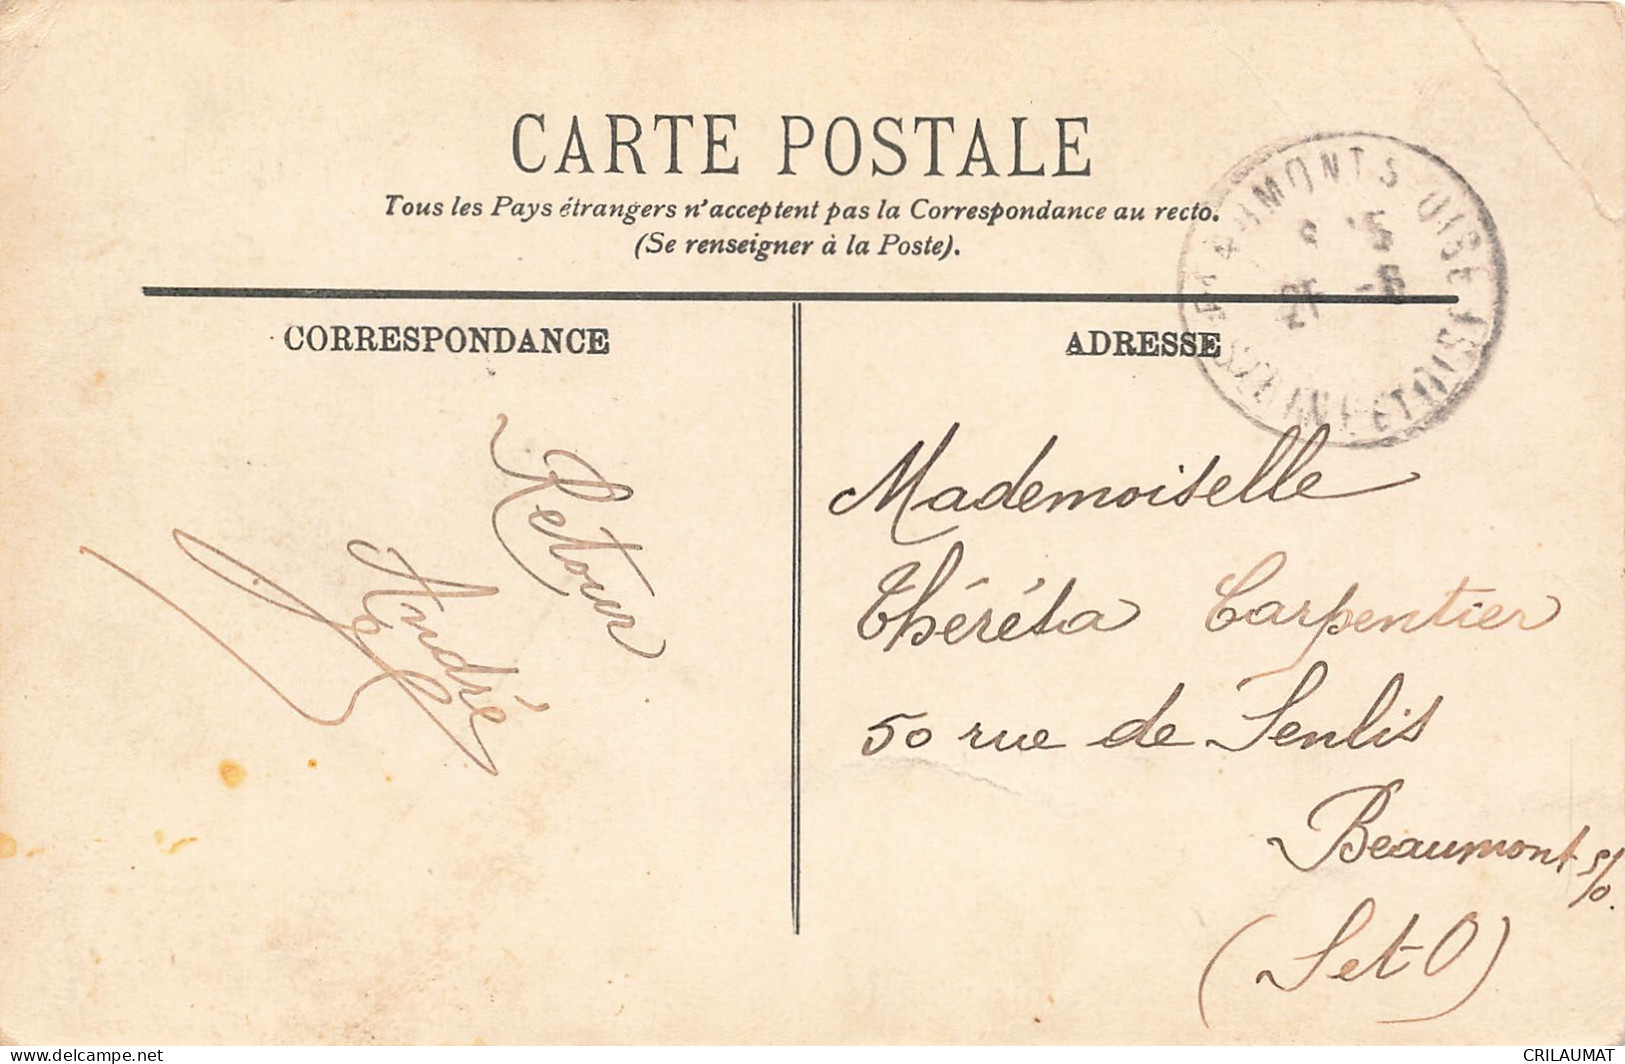 CARTE POSTALE
Tous les Pays étrangers n'acceptent pas la Correspondance au recto.
(Se renseigner à la Poste).
CORRESPONDANCE
ADRESSE
Retour
André
Mademoiselle
Théréta Carpentier
50 rue de Senlis
Beaumont s/o.
(S et-O)
delcampe.net
CRILAUMAT